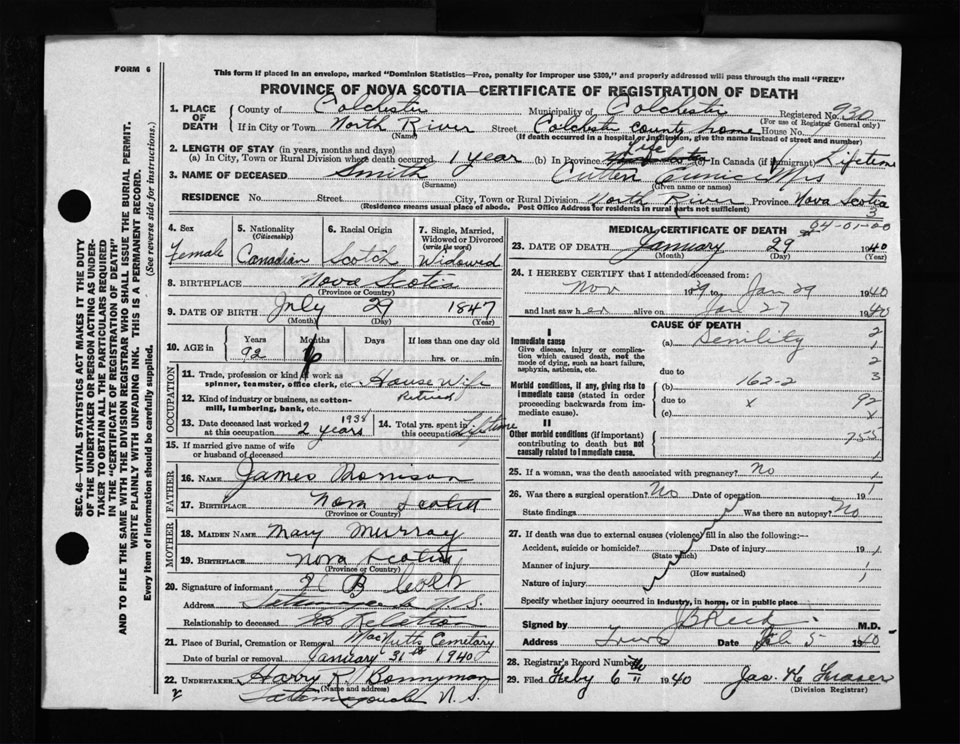 FORM 6
This form if placed in an envelope, marked "Dominion Statistics—Free, penalty for improper use $300," and properly addressed will pass through the mail "FREE"
PROVINCE OF NOVA SCOTIA—CERTIFICATE OF REGISTRATION OF DEATH
1. PLACE OF DEATH County of Colchester Municipality of Colchester Registered No. 930
(For use of Registrar General only)
If in City or Town North River Street Colchester County home House No.
(Name) (If death occurred in a hospital or institution, give the name instead of street and number)
2. LENGTH OF STAY (in years, months and days)
(a) In City, Town or Rural Division where death occurred 1 year (b) In Province life (c) In Canada (if immigrant) Lifetime
3. NAME OF DECEASED Smith Eunice Mrs
(Surname) (Given name or names)
RESIDENCE No. Street City, Town or Rural Division North River Province Nova Scotia
(Residence means usual place of abode. Post Office Address for residents in rural parts not sufficient) 3
4. Sex Female
5. Nationality (Citizenship) Canadian
6. Racial Origin Scotch
7. Single, Married, Widowed or Divorced (write the word) Widowed
8. BIRTHPLACE Nova Scotia
(Province or Country)
9. DATE OF BIRTH July 29 1847
(Month) (Day) (Year)
10. AGE in Years Months Days If less than one day old
92 6 hrs. or min.
OCCUPATION
11. Trade, profession or kind of work as spinner, teamster, office clerk, etc. House Wife
Retired
12. Kind of industry or business, as cotton-mill, lumbering, bank, etc.
13. Date deceased last worked at this occupation 1938 2 years
14. Total yrs. spent in this occupation Lifetime
15. If married give name of wife or husband of deceased
FATHER
16. NAME James Morrison
17. BIRTHPLACE Nova Scotia
(Province or Country)
MOTHER
18. MAIDEN NAME Mary Murray
19. BIRTHPLACE Nova Scotia
(Province or Country)
20. Signature of informant
Address Tatamagouche N.S.
Relationship to deceased No Relation
21. Place of Burial, Cremation or Removal MacNutts Cemetary
Date of burial or removal January 31st 1940
22. UNDERTAKER Harry R. Bonnyman
(Name and address)
Tatamagouche N.S.
MEDICAL CERTIFICATE OF DEATH
04-01-00
23. DATE OF DEATH January 29 1940
(Month) (Day) (Year)
24. I HEREBY CERTIFY that I attended deceased from:
Nov 1939 to Jan 29 1940
and last saw her alive on Jan 27 1940
CAUSE OF DEATH
I
Immediate cause
Give disease, injury or complication which caused death, not the mode of dying, such as heart failure, asphyxia, asthenia, etc.
(a) Senility
due to
Morbid conditions, if any, giving rise to immediate cause (stated in order proceeding backwards from immediate cause).
(b) 162-2
due to x
(c)
II
Other morbid conditions (if important) contributing to death but not causally related to immediate cause.
2
2
3
92
x
755
25. If a woman, was the death associated with pregnancy? No
26. Was there a surgical operation? No Date of operation 19
State findings Was there an autopsy? No
27. If death was due to external causes (violence) fill in also the following:—
Accident, suicide or homicide? Date of injury 19
(State which)
Manner of injury
(How sustained)
Nature of injury
Specify whether injury occurred in industry, in home, or in public place
Signed by M.D.
Address Truro Date Feb 5 1940
28. Registrar's Record Number
29. Filed Feby 6 1940 Jas. K Fraser
(Division Registrar)
SEC. 46—VITAL STATISTICS ACT MAKES IT THE DUTY
OF THE UNDERTAKER OR PERSON ACTING AS UNDER-
TAKER TO OBTAIN ALL THE PARTICULARS REQUIRED
IN THE "CERTIFICATE OF REGISTRATION OF DEATH"
AND TO FILE THE SAME WITH THE DIVISION REGISTRAR WHO SHALL ISSUE THE BURIAL PERMIT.
WRITE PLAINLY WITH UNFADING INK. THIS IS A PERMANENT RECORD.
Every item of information should be carefully supplied. (See reverse side for instructions.)